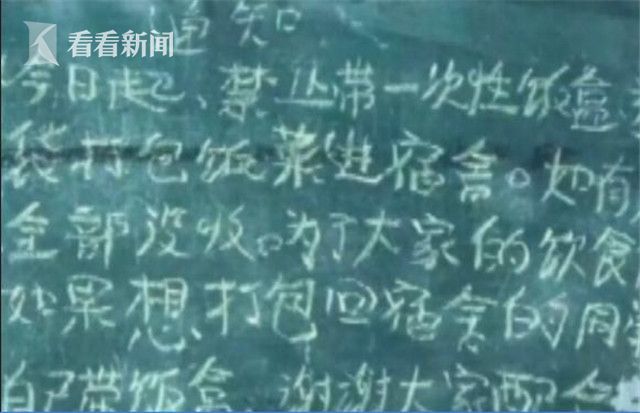 看看新闻
通知
今日起、禁止带一次性饭盒
袋打包饭菜进宿舍。如有
全部没收。为了大家的饮食
如果想打包回宿舍的同学
自己带饭盒、谢谢大家配合